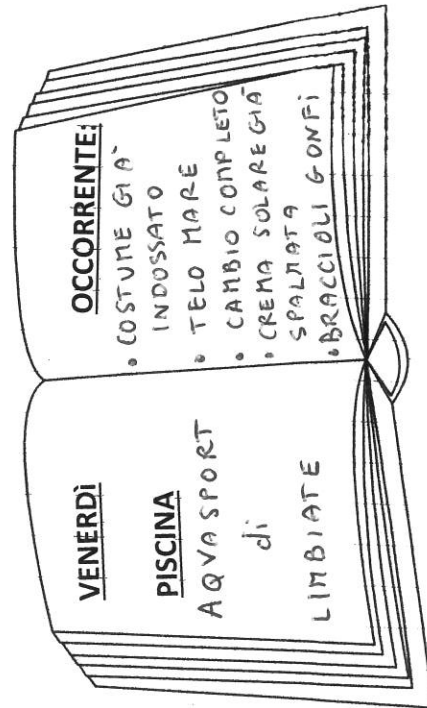 VENERDÌ
PISCINA
AQVASPORT
di
LIMBIATE
OCCORRENTE:
• COSTUME GIA'
INDOSSATO
• TELO MARE
• CAMBIO COMPLETO
• CREMA SOLARE GIÀ
SPALMATA
• BRACCIOLI GONFI